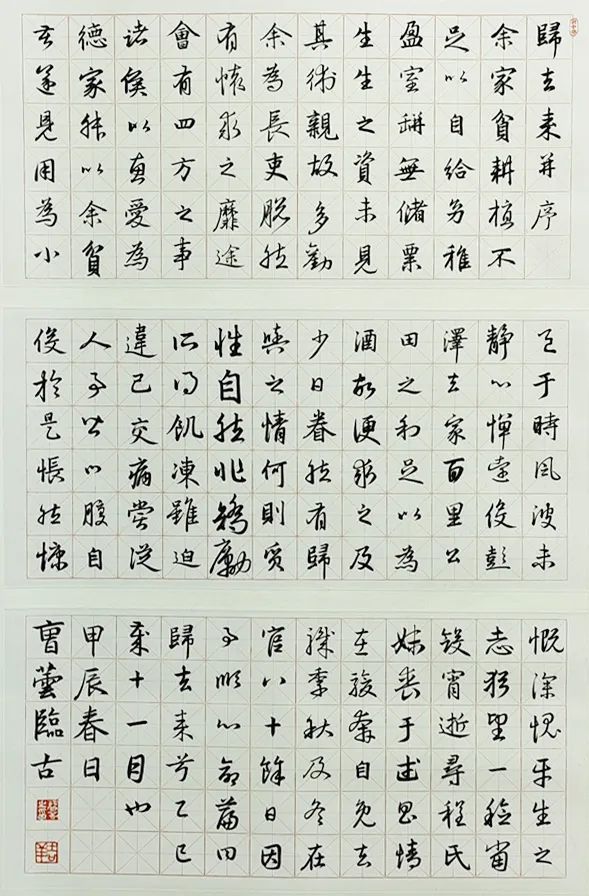 歸去来并序
余家貧耕植不
足以自給幼稚
盈室缾無儲粟
生生之資未見
其術親故多勸
余為長吏脫然
有懷求之靡途
會有四方之事
諸侯以惠愛為
德家叔以余貧
苦遂見用為小
邑于時風波未
靜心憚遠役彭
澤去家百里公
田之利足以為
酒故便求之及
少日眷然有歸
與之情何則質
性自然非矯勵
所得飢凍雖迫
違己交病嘗從
人事皆口腹自
役於是悵然慷
慨深愧平生之
志猶望一稔當
斂宵逝尋程氏
妹喪于武昌情
在駿奔自免去
職季秋及冬在
官八十餘日因
事順心命篇曰
歸去来兮乙巳
歲十一月也
甲辰春日
曹蕓臨古